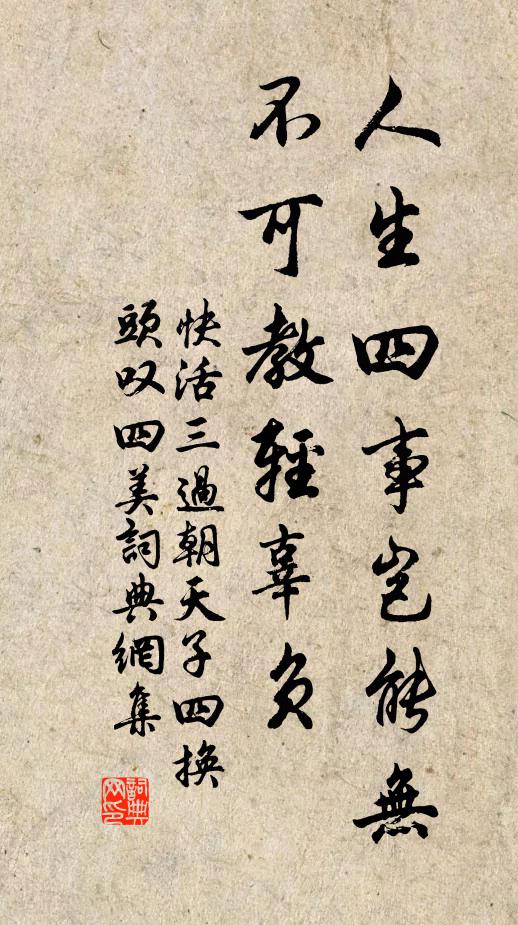 人生四事岂能無
不可教輕辜负
快活三過朝天子四换
頭叹四美詞典網集
詞典
网印